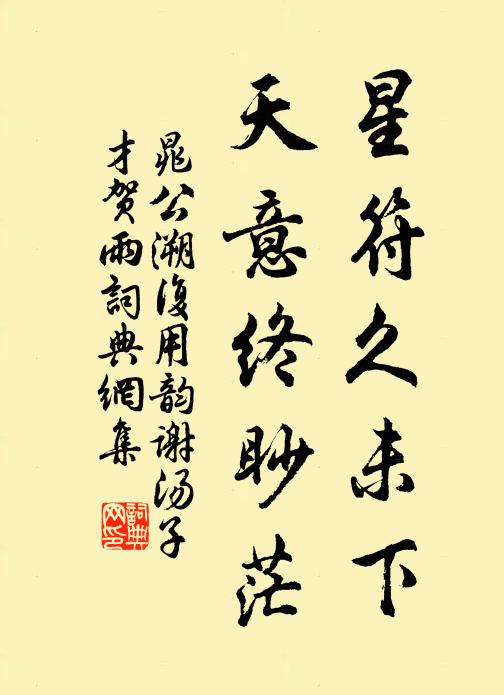 星符久未下
天意终眇茫
晁公溯復用韵谢汤子
才贺雨詞典網集
詞典
网印